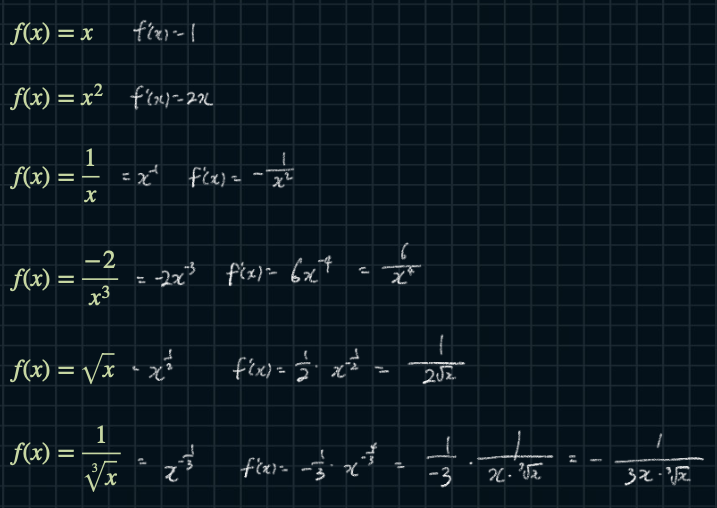 f(x) = x f'(x) = 1
f(x) = x² f'(x) = 2x
f(x) = 1/x = x⁻¹ f'(x) = -1/x²
f(x) = -2/x³ = -2x⁻³ f'(x) = 6x⁻⁴ = 6/x⁴
f(x) = √x = x^(1/2) f'(x) = 1/2 · x^(-1/2) = 1/(2√x)
f(x) = 1/∛x = x^(-1/3) f'(x) = -1/3 · x^(-4/3) = 1/-3 · 1/(x·∛x) = - 1/(3x·∛x)